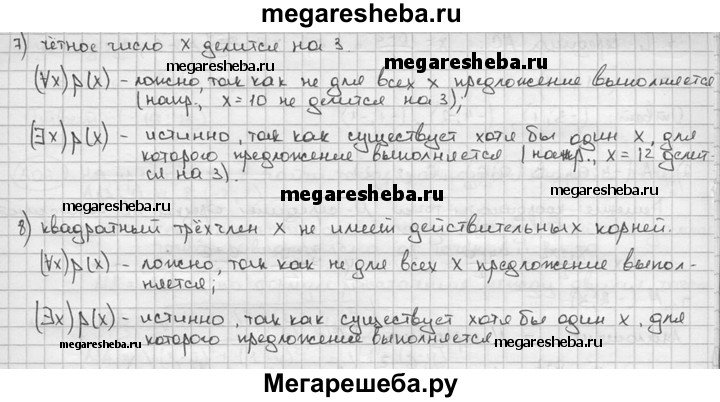 megaresheba.ru
7) чётное число x делится на 3
megaresheba.ru
(∀x)p(x) - ложно, так как не для всех x предложение выполняется
(напр., x=10 не делится на 3);
megaresheba.ru
megaresheba.ru
(∃x)p(x) - истинно, так как существует хотя бы один x, для
которого предложение выполняется (напр., x=12 делит-
ся на 3).
megaresheba.ru
megaresheba.ru
megaresheba.ru
8) квадратный трёхчлен x не имеет действительных корней.
(∀x)p(x) - ложно, так как не для всех x предложение выпол-
няется;
megaresheba.ru
megaresheba.ru
(∃x)p(x) - истинно, так как существует хотя бы один x, для
которого предложение выполняется
megaresheba.ru
megaresheba.ru
Мегарешеба.ру